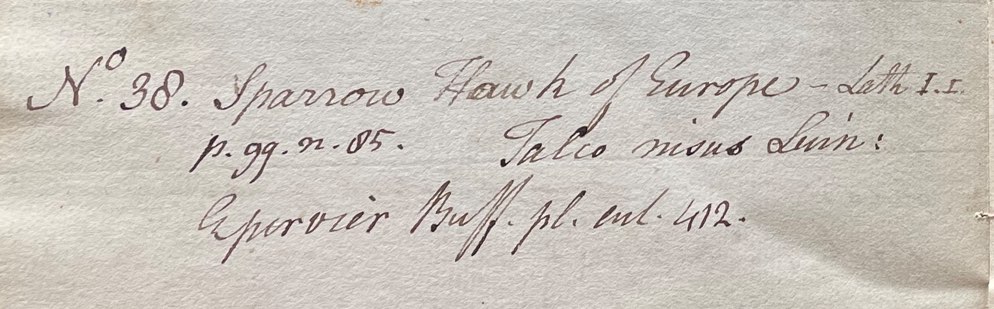 Nº. 38. Sparrow Hawk of Europe - Lath I.I.
p. 99. n. 85. Falco nisus Linn:
Epervier Buff. pl. enl. 412.